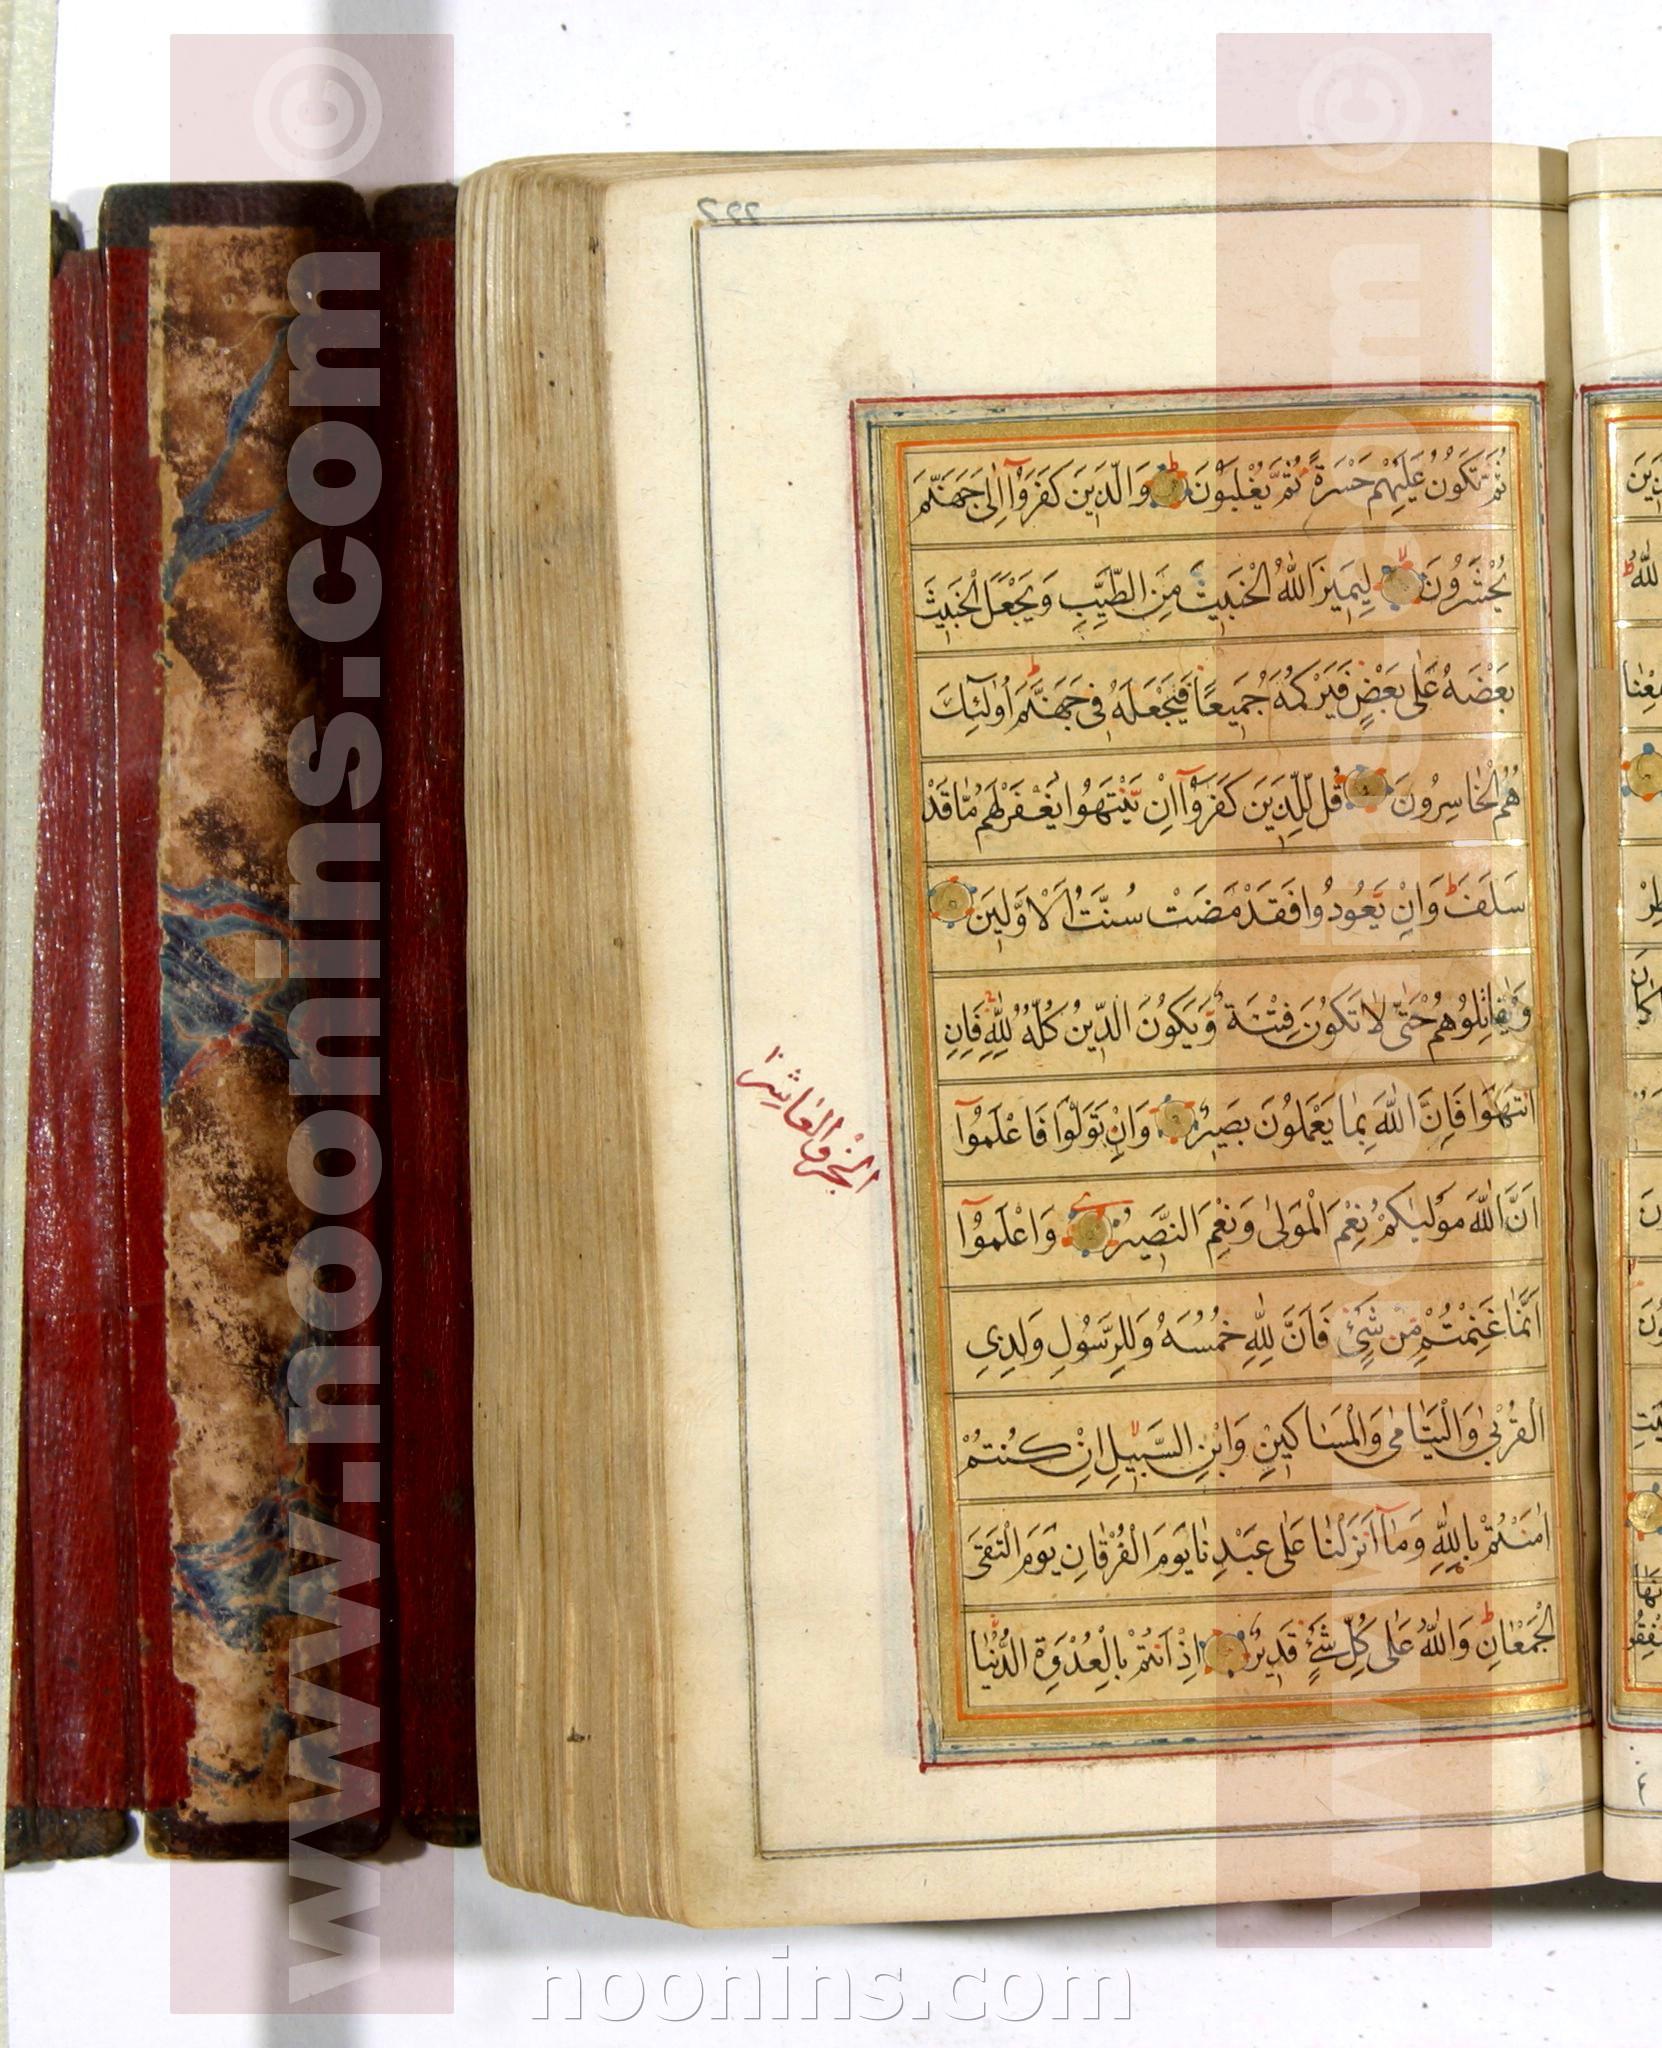 ثُمَّ تَكُونُ عَلَيْهِمْ حَسْرَةً ثُمَّ يُغْلَبُونَ وَالَّذِينَ كَفَرُوٓا اِلٰى جَهَنَّمَ
يُحْشَرُونَ لِيَمِيزَ اللّٰهُ الْخَبِيثَ مِنَ الطَّيِّبِ وَيَجْعَلَ الْخَبِيثَ
بَعْضَهُ عَلٰى بَعْضٍ فَيَرْكُمَهُ جَمِيعًا فَيَجْعَلَهُ فِى جَهَنَّمَ اُولٰٓئِكَ
هُمُ الْخَاسِرُونَ قُلْ لِلَّذِينَ كَفَرُوٓا اِنْ يَنْتَهُوا يُغْفَرْ لَهُمْ مَا قَدْ
سَلَفَ وَاِنْ يَعُودُوا فَقَدْ مَضَتْ سُنَّتُ الْاَوَّلِينَ
وَقَاتِلُوهُمْ حَتّٰى لَا تَكُونَ فِتْنَةٌ وَيَكُونَ الدِّينُ كُلُّهُ لِلّٰهِ فَاِنِ
انْتَهَوْا فَاِنَّ اللّٰهَ بِمَا يَعْمَلُونَ بَصِيرٌ وَاِنْ تَوَلَّوْا فَاعْلَمُوٓا
اَنَّ اللّٰهَ مَوْلٰيكُمْ نِعْمَ الْمَوْلٰى وَنِعْمَ النَّصِيرُ وَاعْلَمُوٓا
اَنَّمَا غَنِمْتُمْ مِنْ شَىْءٍ فَاَنَّ لِلّٰهِ خُمُسَهُ وَلِلرَّسُولِ وَلِذِى
الْقُرْبٰى وَالْيَتَامٰى وَالْمَسَاكِينِ وَابْنِ السَّبِيلِ اِنْ كُنْتُمْ
اٰمَنْتُمْ بِاللّٰهِ وَمَآ اَنْزَلْنَا عَلٰى عَبْدِنَا يَوْمَ الْفُرْقَانِ يَوْمَ الْتَقَى
الْجَمْعَانِ وَاللّٰهُ عَلٰى كُلِّ شَىْءٍ قَدِيرٌ اِذْ اَنْتُمْ بِالْعُدْوَةِ الدُّنْيَا
الجزؤ العاشر
www.noonins.com ©
www.noonins.com ©
noonins.com